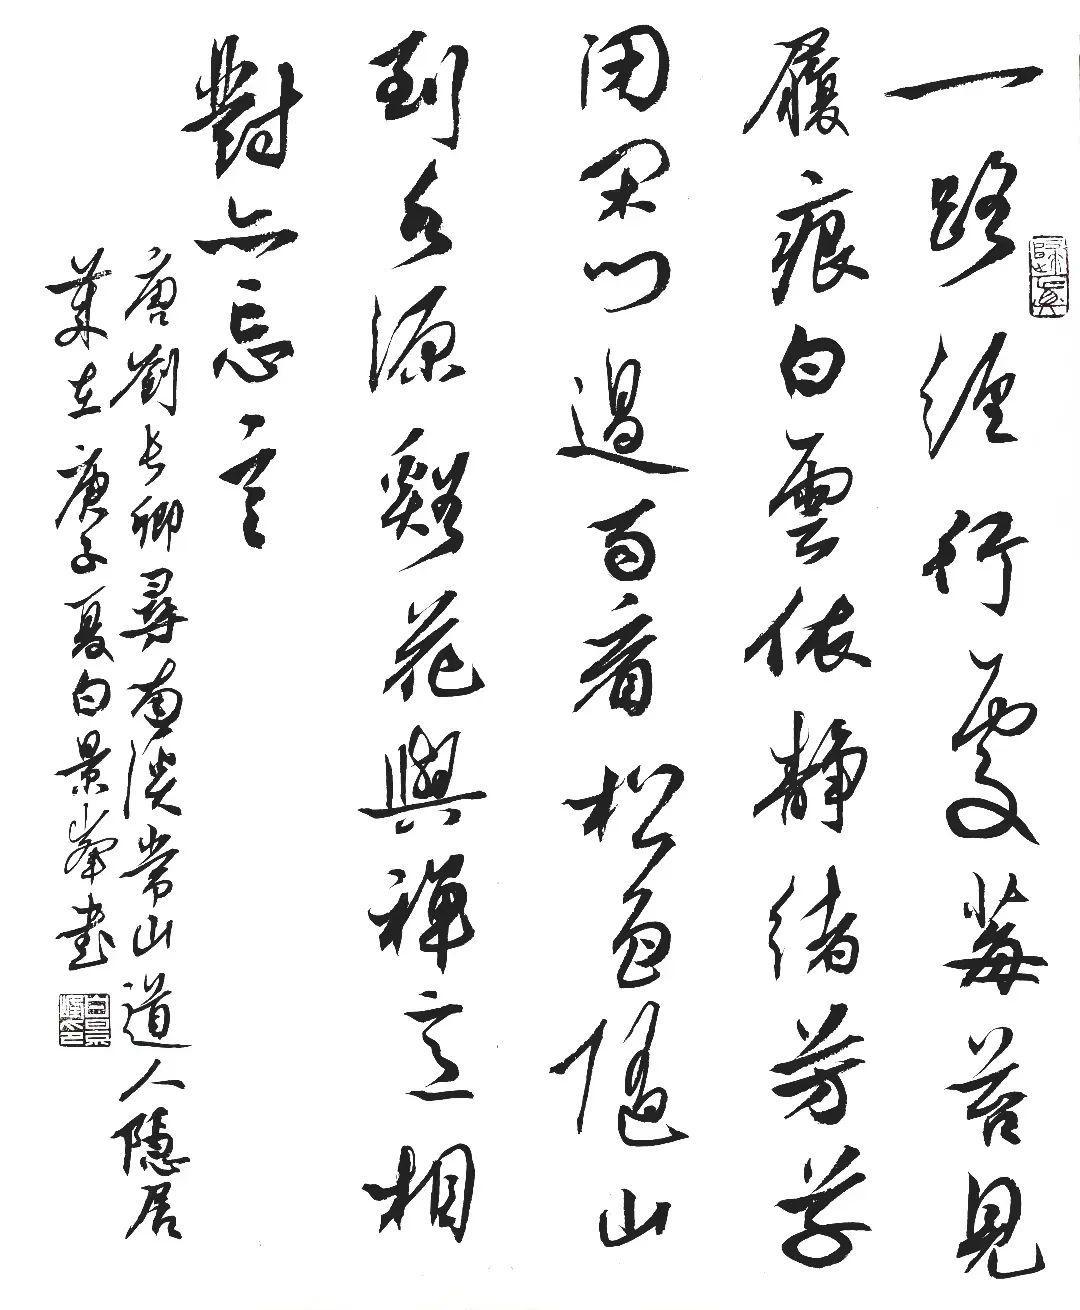 一路經行處莓苔見
履痕白雲依靜渚芳草
閉閑門過雨看松色隨山
到水源谿花與禪意相
對亦忘言
唐劉長卿尋南溪常山道人隱居
歲在庚子夏白景峯書